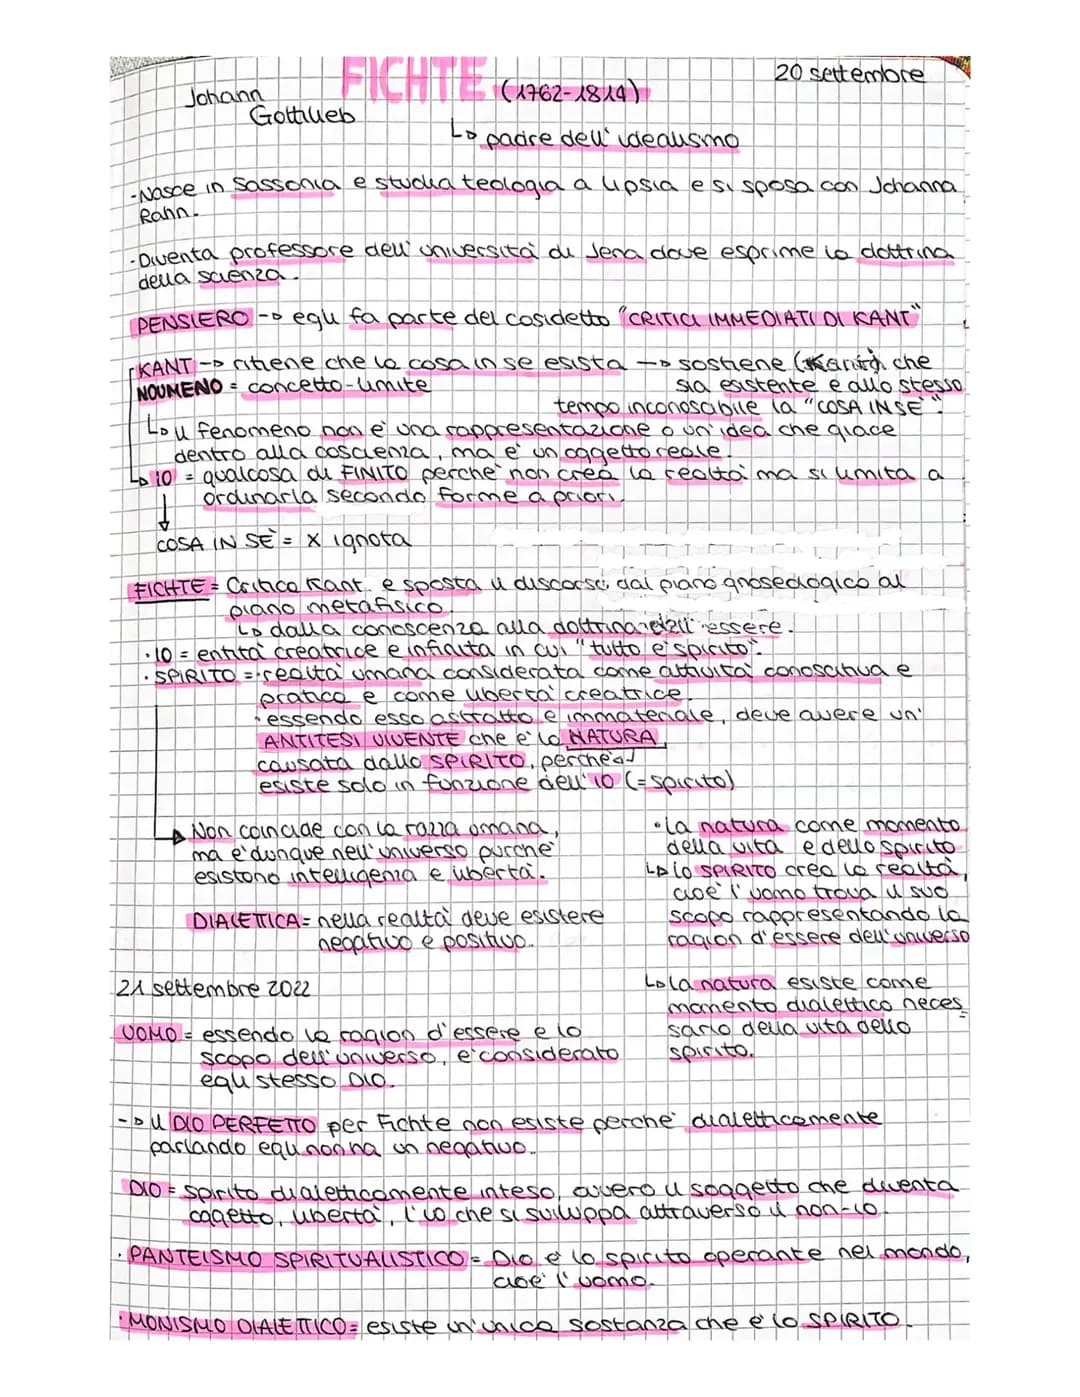 FICHTE (1762-1814)
20 settembre
Johann
Gottlieb
↳ padre dell'idealismo
·Nasce in Sassonia e studia teologia a Lipsia e si sposa con Johanna
Rahn.
·Diventa professore dell'università di Jena dove esprime la dottrina
della scienza.
PENSIERO -> egli fa parte del cosidetto "CRITICI IMMEDIATI DI KANT"
KANT -> ritiene che la cosa in se esista -> sostiene (Kant) che
NOUMENO = concetto-limite
sia esistente e allo stesso
tempo inconosabile la "COSA IN SÈ".
↳ il fenomeno non è una rappresentazione o un'idea che giace
dentro alla coscienza, ma è un oggetto reale.
↳ IO = qualcosa di FINITO perchè non crea la realtà ma si limita a
ordinarla secondo forme a priori
↓
COSA IN SÈ = X ignota
FICHTE = Critica Kant e sposta il discorso dal piano gnoseologico al
piano metafisico.
↳ dalla conoscenza alla dottrina dell'essere.
·IO = entità creatrice e infinita in cui "tutto è spirito".
·SPIRITO = ·realtà umana considerata come attività conoscitiva e
pratica e come libertà creatrice.
·essendo esso astratto e immateriale, deve avere un'
ANTITESI VIVENTE che è la NATURA
causata dallo SPIRITO, perchè
esiste solo in funzione dell'IO (=spirito)
Non coincide con la razza umana,
ma è dunque nell'universo purchè
esistono intelligenza e libertà.
DIALETICA = nella realtà deve esistere
negativo e positivo.
·la natura come momento
della vita e dello spirito
↳ lo SPIRITO crea la realtà,
cioè l'uomo trova il suo
scopo rappresentando la
ragion d'essere dell'universo
↳ la natura esiste come
momento dialettico neces_
sario della vita dello
spirito.
21 settembre 2022
UOMO = essendo la ragion d'essere e lo
scopo dell'universo, è considerato
egli stesso DIO.
-> il DIO PERFETTO per Fichte non esiste perchè dialetticamente
parlando egli non ha un negativo.
DIO = spirito dialetticamente inteso, ovvero il soggetto che diventa
oggetto, libertà, l'io che si sviluppa attraverso il non-io.
·PANTEISMO SPIRITUALISTICO = Dio è lo spirito operante nel mondo,
cioè l'uomo.
·MONISMO DIALETTICO = esiste un'unica sostanza che è lo SPIRITO.